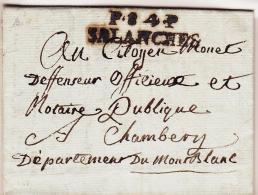 P.84.P
SALANCHES
Au Citoyen Monet
Deffenseur Officieux et
Notaire Publique
A Chambery
Département Du Mont Blanc